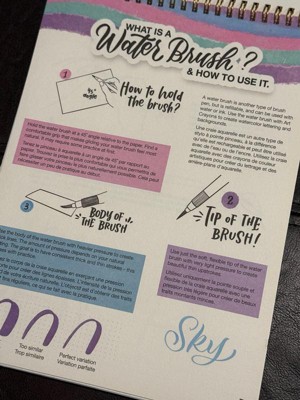 WHAT IS A
Water Brush?
& HOW TO USE IT.
1
45°
angle
How to hold
the brush?
A water brush is another type of brush
pen, but is refillable, and can be used with
water or ink. Use the water brush with Art
Crayons to create watercolor lettering and
backgrounds.
Une craie aquarelle est un autre type de
stylo à pinceau, à la différence
qu'elle est rechargeable et peut être utilisé
avec de l'eau ou de l'encre. Utilisez la craie
aquarelle avec des crayons de couleur
artistiques pour créer du lettrage et des
arrière-plans d'aquarelle.
Hold the water brush at a 45° angle relative to the paper. Find a
comfortable grip that makes gliding your water brush feel
natural. It may require some practice at first.
Tenez le pinceau à aquarelle à un angle de 45° par rapport au
papier. Trouvez la prise la plus confortable qui vous permettra de
faire glisser votre pinceau le plus naturellement possible. Cela peut
nécessiter un peu de pratique au début.
3
BODY OF
THE BRUSH
2
TIP OF THE
BRUSH!
the body of the water brush with heavier pressure to create
thick
The amount of pressure depends on your natural
The goal is to have consistent thick and thin strokes - this
with practice.
Use just the soft, flexible tip of the water
brush with very light pressure to create
beautiful thin upstrokes.
Utilisez uniquement la pointe souple et
douce de la craie aquarelle avec une
pression très légère pour créer de beaux
traits montants minces.
corps de la craie aquarelle en exerçant une pression
Too similar
Trop similaire
Perfect variation
Variation parfaite
Sky